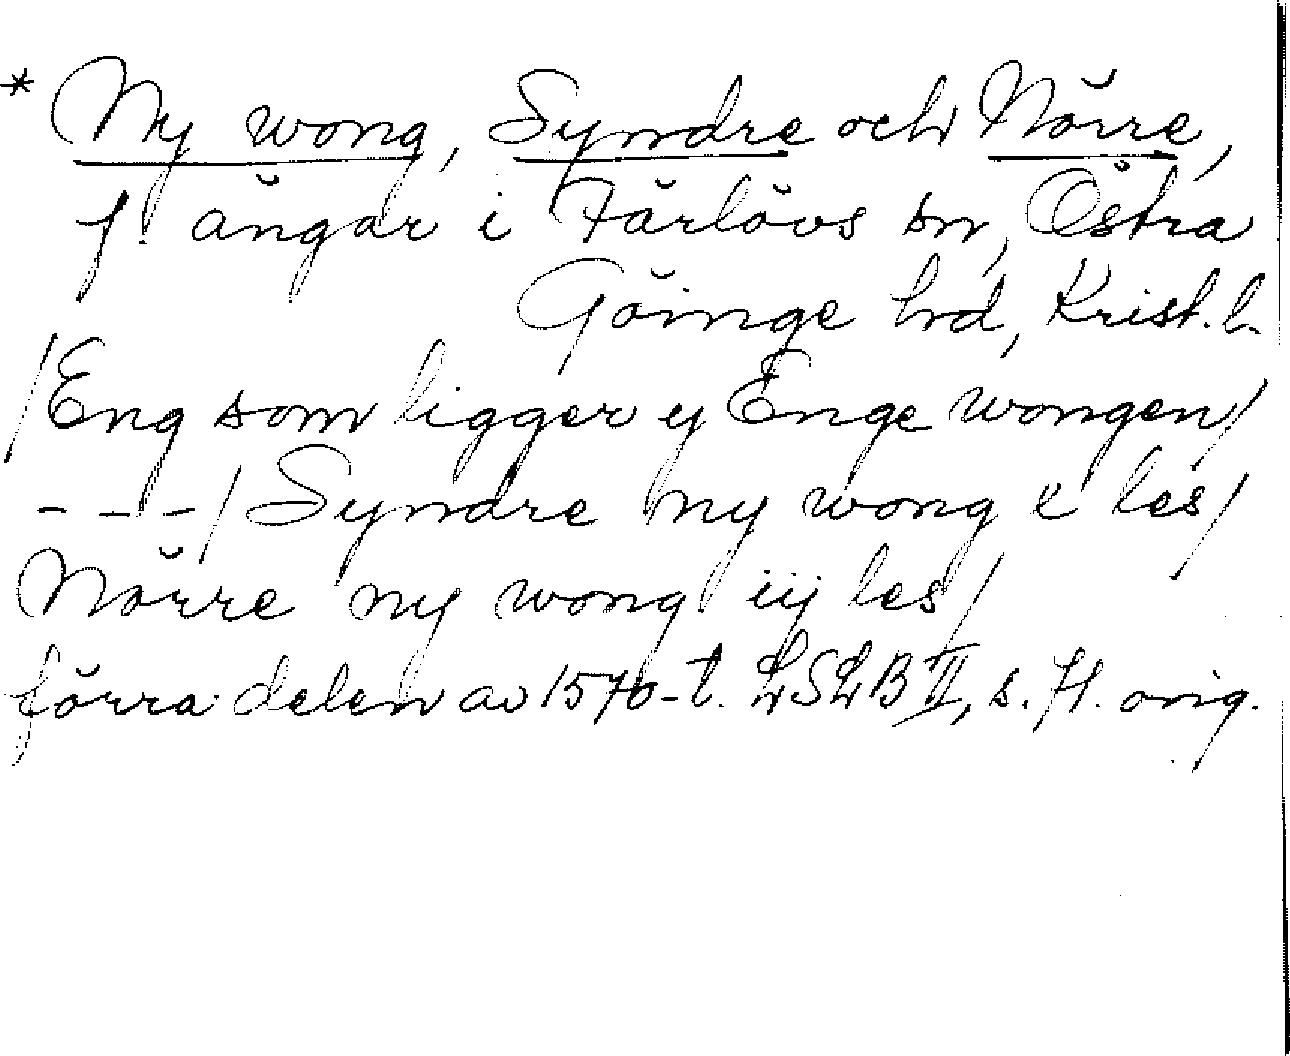 * Ny wong, Syndre och Nörre,
f. ängar i Färlövs sn, Östra
Göinge hd, Krist. l.
/Eng som ligger y Enge wongen/
- - - / Syndre ny wong x les/
Nörre ny wong iij les/
förra delen av 1570-t. LSLB II, s. 71. orig.